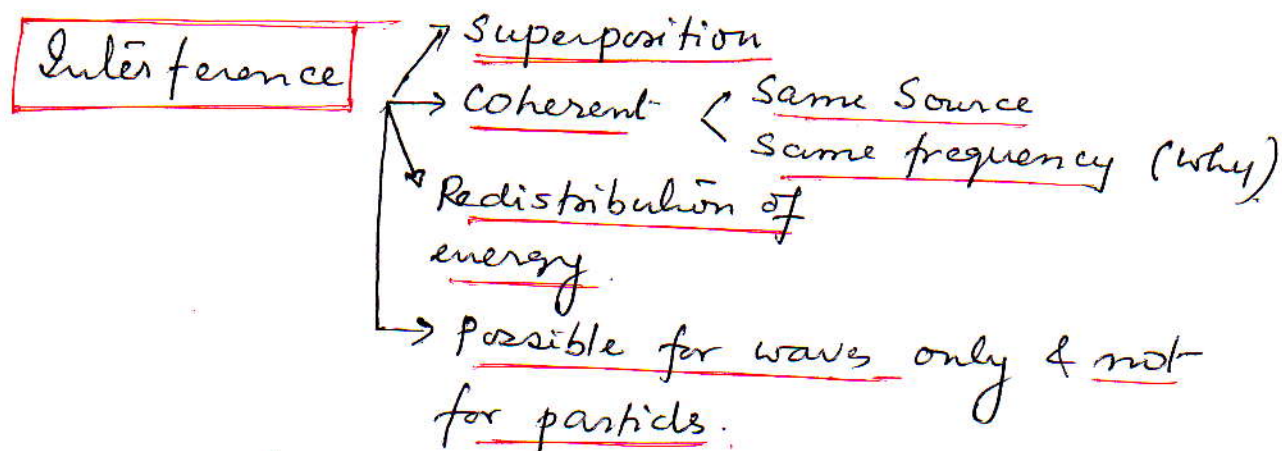 Interference
Superposition
Coherent
Same Source
Same frequency (why)
Redistribution of
energy.
Possible for waves only & not
for particls.